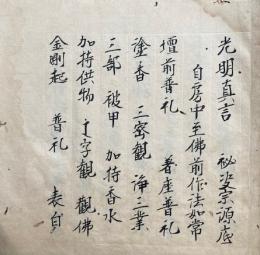 光明真言　秘宗源底
自房中至佛前作法如常
壇前普礼　着座普礼
塗香　三密觀　淨三業
三部　被甲　加持香水
加持供物　字觀　觀佛
金剛起　普礼　表白